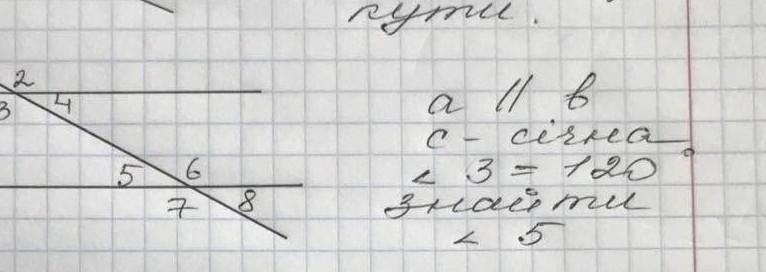 кути.
2
3 4
5 6
7 8
а || в
с - січна
< 3 = 120°
знайти
< 5